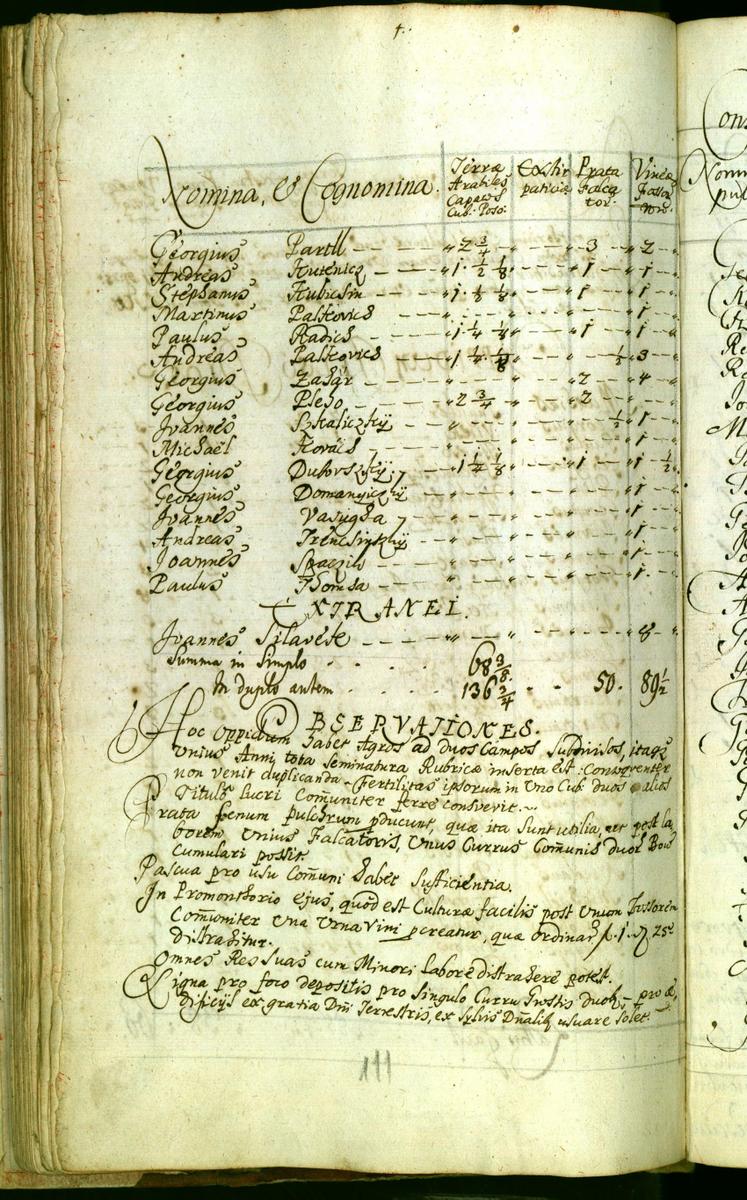 Nomina, & Cognomina. Terræ Arabiles Capaces Cub: Poso: Extirpaticiæ Prata Falcator. Vineæ Fossor
Georgius Partl 2 3/4 3 2
Andreas Kutenicz 1 1/2 1/8 1 1
Stephanus Kubicsin 1 1/8 1/8 1 1
Martinus Palkovics 1
Paulus Radics 1 1/4 1/8 1 1
Andreas Palkovics 1 1/4 1/8 1/2 3
Georgius Zahár 2 4
Georgius Pleso 2 3/4 2
Joannes Szkaliczkÿ 1/2 1
Michaël Kovács 1
Georgius Dubovszkÿ 1 1/4 1/8 1 1 1/2
Georgius Domaniczkÿ 1
Joannes 1
Andreas Trencsinszkÿ 1
Joannes 1
Paulus Thomka 1
EXTRANEI.
Joannes 8
Summa in Simplo 68 3/8
In duplo autem 136 3/4 50. 89 1/2
OBSERVATIONES.
Hoc Oppidum habet Agros ad duos Campos Subdivisos, itaq
Unius Anni tota Seminatura Rubricæ inserta est: Consequenter
non venit duplicanda. Fertilitas ipsorum in Uno Cub. duos alios
Titulo lucri Com̃uniter ferre consvevit.
Prata fœnum pulchrum pducunt, quæ ita Sunt utilia, ut post la
borem Unius Falcatoris, Unus Currus Com̃unis duor Boũ
Cumulari possit.
Pascua pro usu Com̃uni habet Sufficientia.
In Promonthorio Ejus, quod est Culturæ facilis post Unum Fossorem
Com̃uniter Una Urna Vini pcreatur, quæ ordinar f. 1. d 25.
distrahitur.
Omnes Res Suas cum Minori Labore distrahere potest.
Ligna pro foco depositis pro Singulo Curru pro æ
dificijs ex gratia Dn̄i Terrestris, ex Sylvis Dn̄alib usuare Solet.
111